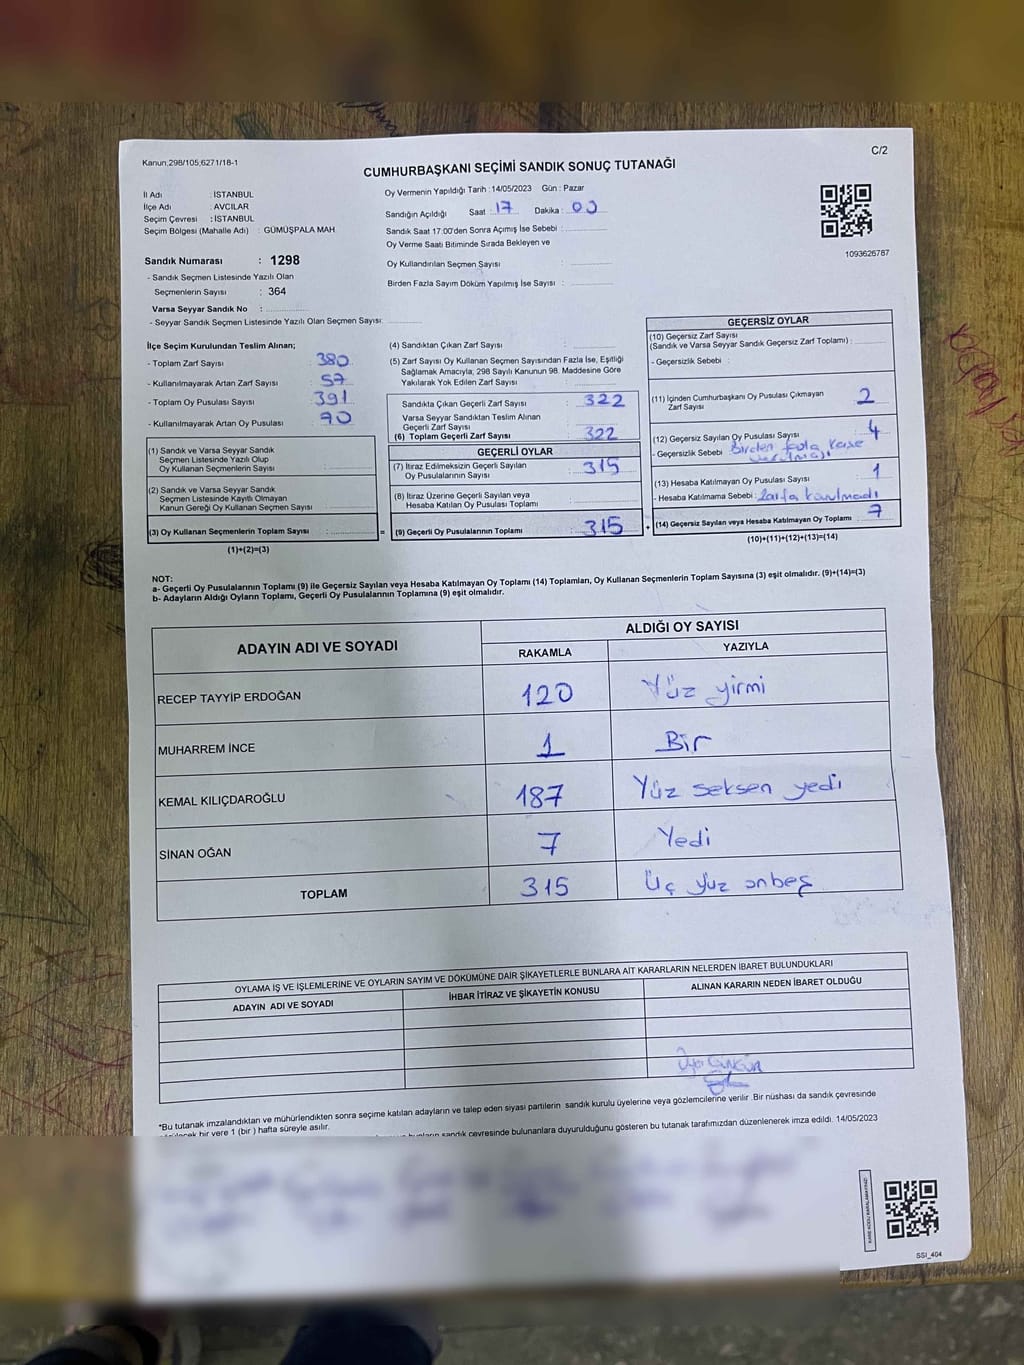 Kanun;298/105;6271/18-1
C/2
CUMHURBAŞKANI SEÇİMİ SANDIK SONUÇ TUTANAĞI
İl Adı : İSTANBUL
İlçe Adı : AVCILAR
Seçim Çevresi : İSTANBUL
Seçim Bölgesi (Mahalle Adı) : GÜMÜŞPALA MAH
Oy Vermenin Yapıldığı Tarih :14/05/2023 Gün : Pazar
Sandığın Açıldığı Saat : 17 Dakika : 00
Sandık Saat 17:00'den Sonra Açımış İse Sebebi :
Oy Verme Saati Bitiminde Sırada Bekleyen ve
Oy Kullandırılan Seçmen Sayısı :
Birden Fazla Sayım Döküm Yapılmış İse Sayısı :
1093626787
Sandık Numarası : 1298
- Sandık Seçmen Listesinde Yazılı Olan
Seçmenlerin Sayısı : 364
Varsa Seyyar Sandık No :
- Seyyar Sandık Seçmen Listesinde Yazılı Olan Seçmen Sayısı:
İlçe Seçim Kurulundan Teslim Alınan;
- Toplam Zarf Sayısı : 380
- Kullanılmayarak Artan Zarf Sayısı : 57
- Toplam Oy Pusulası Sayısı : 391
- Kullanılmayarak Artan Oy Pusulası : 70
(1) Sandık ve Varsa Seyyar Sandık
Seçmen Listesinde Yazılı Olup
Oy Kullanan Seçmenlerin Sayısı :
(2) Sandık ve Varsa Seyyar Sandık
Seçmen Listesinde Kayıtlı Olmayan
Kanun Gereği Oy Kullanan Seçmen Sayısı :
(3) Oy Kullanan Seçmenlerin Toplam Sayısı :
(1)+(2)=(3)
(4) Sandıktan Çıkan Zarf Sayısı :
(5) Zarf Sayısı Oy Kullanan Seçmen Sayısından Fazla İse, Eşitliği
Sağlamak Amacıyla; 298 Sayılı Kanunun 98. Maddesine Göre
Yakılarak Yok Edilen Zarf Sayısı :
Sandıkta Çıkan Geçerli Zarf Sayısı : 322
Varsa Seyyar Sandıktan Teslim Alınan
Geçerli Zarf Sayısı :
(6) Toplam Geçerli Zarf Sayısı : 322
GEÇERLİ OYLAR
(7) İtiraz Edilmeksizin Geçerli Sayılan
Oy Pusulalarının Sayısı : 315
(8) İtiraz Üzerine Geçerli Sayılan veya
Hesaba Katılan Oy Pusulası Toplamı :
= (9) Geçerli Oy Pusulalarının Toplamı : 315
GEÇERSİZ OYLAR
(10) Geçersiz Zarf Sayısı
(Sandık ve Varsa Seyyar Sandık Geçersiz Zarf Toplamı) :
- Geçersizlik Sebebi :
(11) İçinden Cumhurbaşkanı Oy Pusulası Çıkmayan
Zarf Sayısı : 2
(12) Geçersiz Sayılan Oy Pusulası Sayısı : 4
- Geçersizlik Sebebi : Birden fazla kaşe
vurulması
(13) Hesaba Katılmayan Oy Pusulası Sayısı : 1
- Hesaba Katılmama Sebebi : Zarfa konulmadı
+ (14) Geçersiz Sayılan veya Hesaba Katılmayan Oy Toplamı : 7
(10)+(11)+(12)+(13)=(14)
NOT:
a- Geçerli Oy Pusulalarının Toplamı (9) ile Geçersiz Sayılan veya Hesaba Katılmayan Oy Toplamı (14) Toplamları, Oy Kullanan Seçmenlerin Toplam Sayısına (3) eşit olmalıdır. (9)+(14)=(3)
b- Adayların Aldığı Oyların Toplamı, Geçerli Oy Pusulalarının Toplamına (9) eşit olmalıdır.
ADAYIN ADI VE SOYADI
ALDIĞI OY SAYISI
RAKAMLA YAZIYLA
RECEP TAYYİP ERDOĞAN 120 Yüz yirmi
MUHARREM İNCE 1 Bir
KEMAL KILIÇDAROĞLU 187 Yüz seksen yedi
SİNAN OĞAN 7 Yedi
TOPLAM 315 Üç yüz onbeş
OYLAMA İŞ VE İŞLEMLERİNE VE OYLARIN SAYIM VE DÖKÜMÜNE DAİR ŞİKAYETLERLE BUNLARA AİT KARARLARIN NELERDEN İBARET BULUNDUKLARI
ADAYIN ADI VE SOYADI İHBAR İTİRAZ VE ŞİKAYETİN KONUSU ALINAN KARARIN NEDEN İBARET OLDUĞU
*Bu tutanak imzalandıktan ve mühürlendikten sonra seçime katılan adayların ve talep eden siyasi partilerin sandık kurulu üyelerine veya gözlemcilerine verilir .Bir nüshası da sandık çevresinde
bir yere 1 (bir ) hafta süreyle asılır.
sandık çevresinde bulunanlara duyurulduğunu gösteren bu tutanak tarafımızdan düzenlenerek imza edildi. 14/05/2023
SSI_404